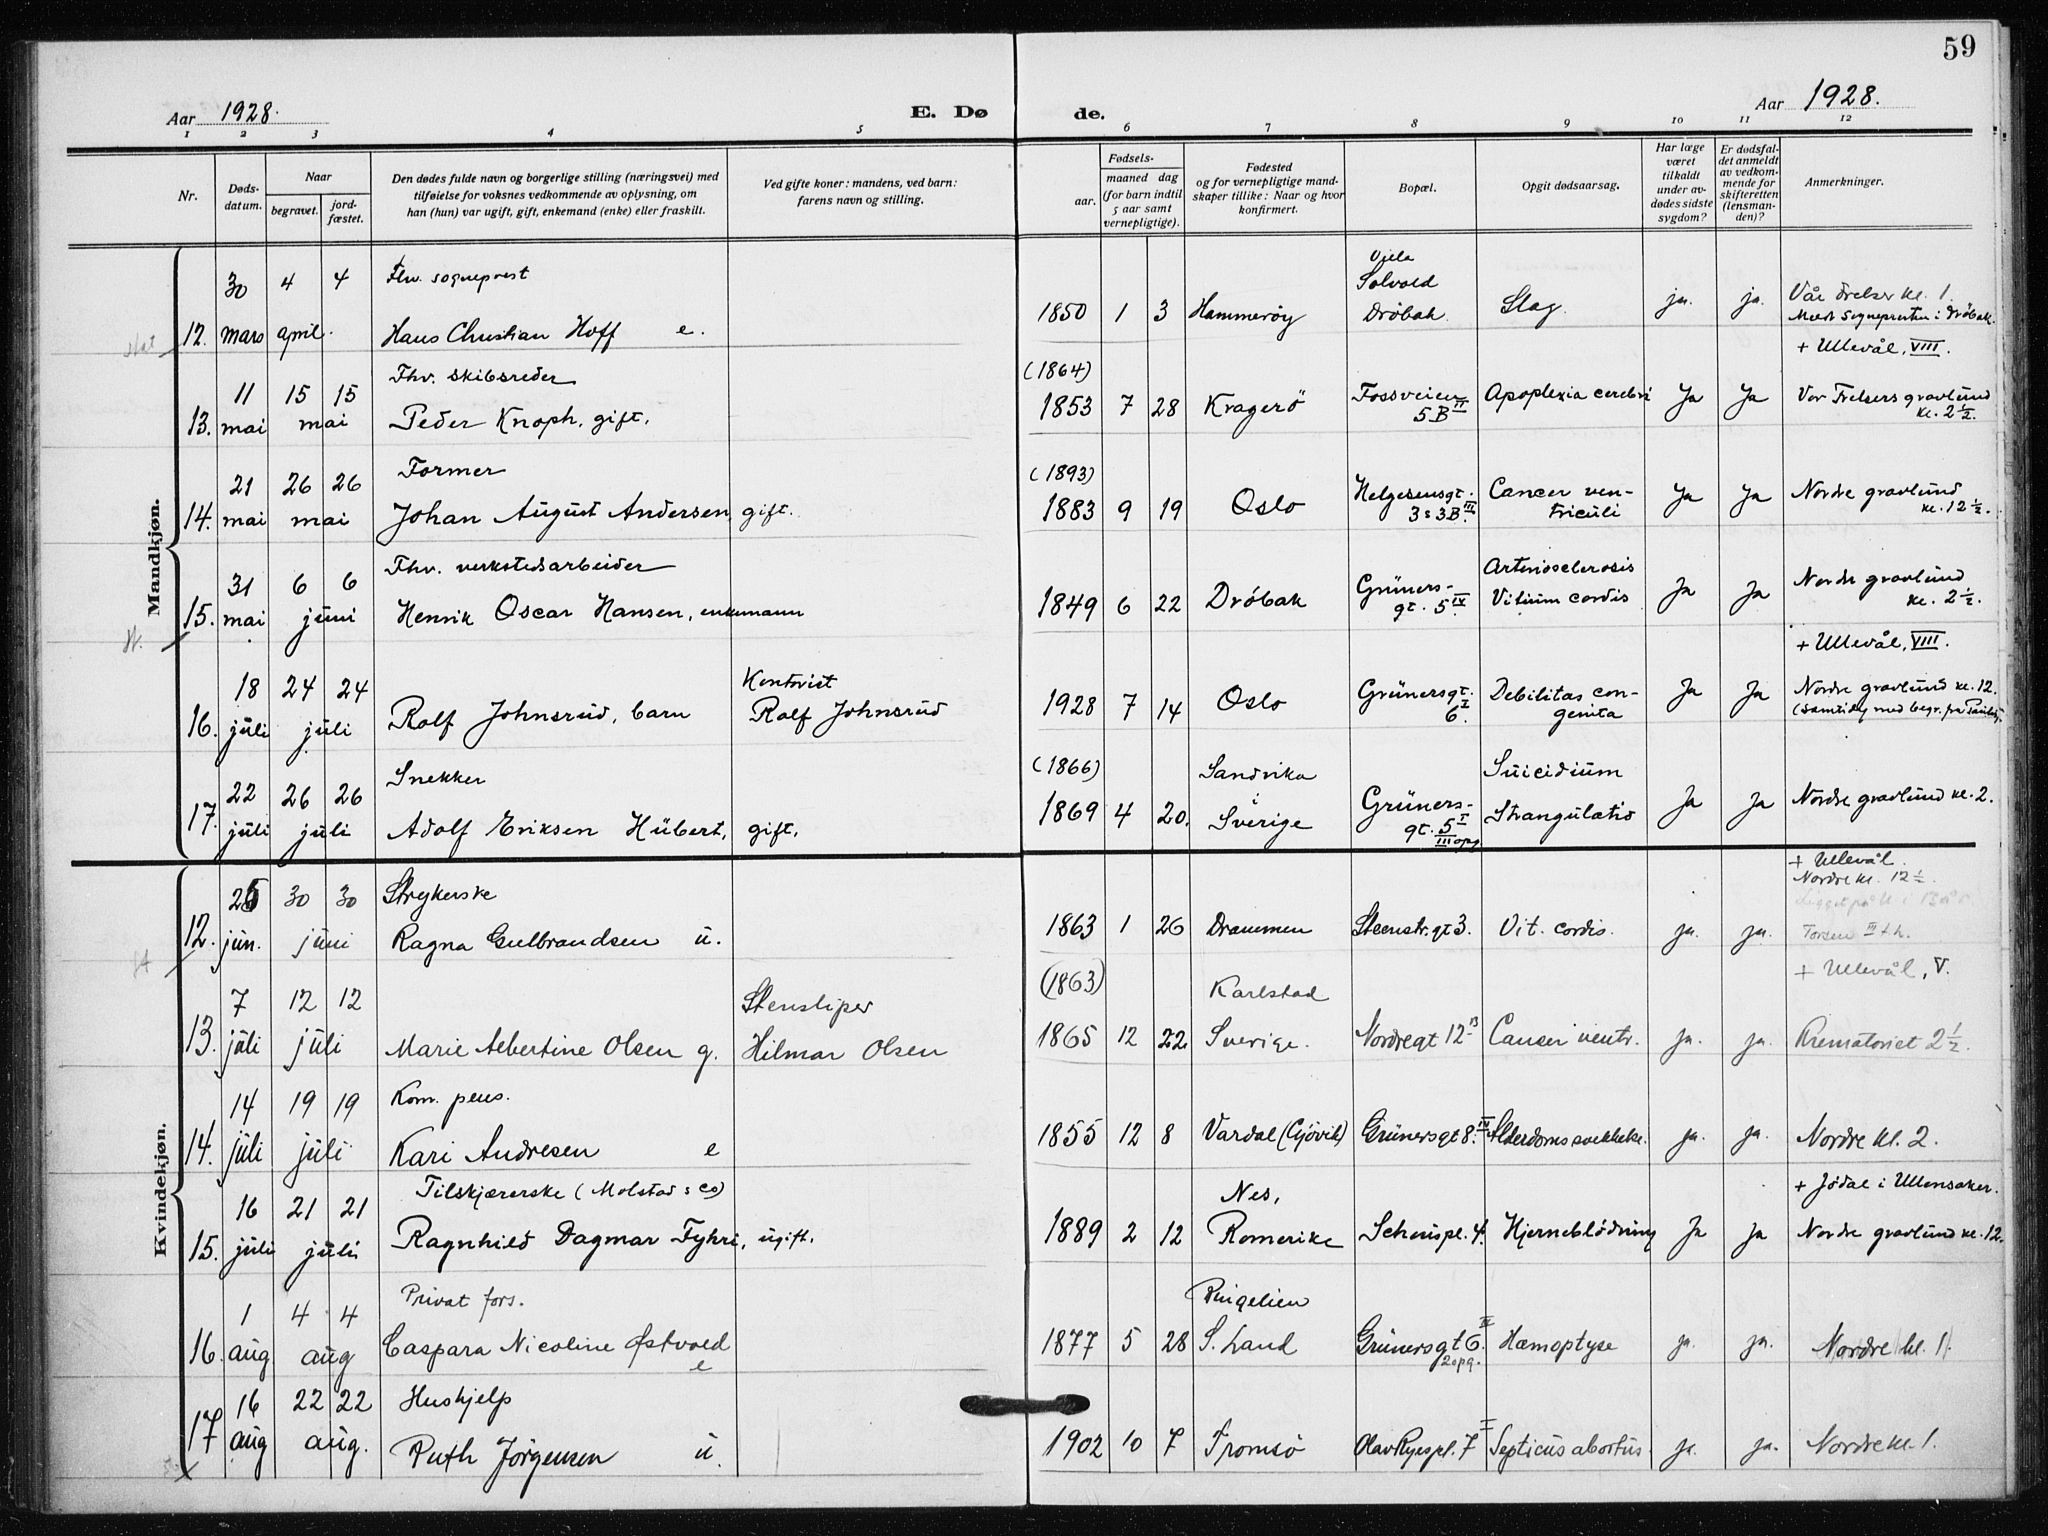 59
Aar 1928.
E. Dø
de.
Aar 1928.
1 2 3 4 5 6 7 8 9 10 11 12
Nr.
Døds-
datum.
Naar
begravet.
jord-
fæstet.
Den dødes fulde navn og borgerlige stilling (næringsvei) med
tilføielse for voksnes vedkommende av oplysning, om
han (hun) var ugift, gift, enkemand (enke) eller fraskilt.
Ved gifte koner: mandens, ved barn:
farens navn og stilling.
Fødsels-
aar.
maaned dag
(for barn indtil
5 aar samt
vernepligtige).
Fødested
og for vernepligtige mand-
skaper tillike: Naar og hvor
konfirmert.
Bopæl.
Opgit dødsaarsag.
Har læge
været
tilkaldt
under av-
dødes sidste
sygdom?
Er dødsfal-
det anmeldt
av vedkom-
mende for
skifteretten
(lensman-
den)?
Anmerkninger.
Mandkjøn.
30 4 4 Fhv. sogneprest
12. mars april. Hans Christian Hoff e.
Villa
Solvold
1850 1 3 Hammerøy Drøbak Slag ja. ja. Vår Frelser kl. 1.
Meldt Sognepresten i Drøbak.
+ Ullevål, VIII.
11 15 15 Fhv. skibsreder
13. mai mai Peder Knoph, gift.
(1864)
1853 7 28 Kragerö Fossveien
5 B II Apoplexia cerebri Ja Ja Vor Frelsers gravlund
kl. 2 1/2.
21 26 26 Former
14. mai mai Johan August Andersen, gift.
(1893)
1883 9 19 Oslo Helgesensgt.
3 : 3B. III Cancer ven-
triculi Ja Ja Nordre gravlund
kl. 12 1/2.
31 6 6 Fhv. verkstedsarbeider
15. mai juni Henrik Oscar Hansen, enkemann
1849 6 22 Dröbak Grüners-
gt. 5 IV Arteriosclerosis
Vitium cordis Ja Ja Nordre gravlund
kl. 2 1/2.
+ Ullevål, VIII.
18 24 24 Kontorist
16. juli juli Rolf Johnsrud, barn Rolf Johnsrud
1928 7 14 Oslo Grünersgt.
6. I Debilitas con-
genita Ja Ja Nordre gravlund kl. 12.
(samtidig med begr. fra
22 26 26 Snekker
17. juli juli Adolf Eriksen Hübert, gift.
(1866) Sandvika
i
1869 4 20. Sverige Grüners-
gt. 5 I
III opg Suicidium
Strangulatio Ja Ja Nordre gravlund kl. 2.
Kvindekjøn.
+ Ullevål.
Nordre kl. 12 1/2.
25 30 30 Strykerske
12. jun. juni Ragna Gulbrandsen u.
1863 1 26 Drammen Steenstr.gt 3. Vit. cordis. ja. ja.
+ Ullevål, V.
7 12 12 Stensliper
13. juli juli Marie Albertine Olsen g. Hilmar Olsen
(1863) Karlstad
1865 12 22 Sverige. Nordregt 12 B Canceri ventr. ja. ja. Krematoriet 2 1/2.
14 19 19 Kom. pens.
14. juli juli Kari Andresen e
1855 12 8 Vardal (Gjövik) Grünersgt 8. IV Alderdomssvekkelse. ja. ja. Nordre kl. 2.
16 21 21 Tilskjærerske (Molstad : Co)
15. juli juli Ragnhild Dagmar Fyhri, ugift.
+ Jödal i Ullensaker.
Nes,
1889 2 12 Romerike Schouspl. 4. Hjerneblödning Ja Ja Nordre gravlund kl. 12.
1 4 4 Privat fors.
16. aug aug Caspara Nicoline Østvold
e
Ringelien
1877 5 28 S. Land Grünersgt 6. II
2 opg. Hæmoptyse ja. ja. Nordre kl. 1.
16 22 22 Hushjelp
17 aug aug. Ruth Jörgensen u.
1902 10 7 Tromsö Olav Ryespl. 7 I Septicus abortus. ja. ja. Nordre kl. 1.